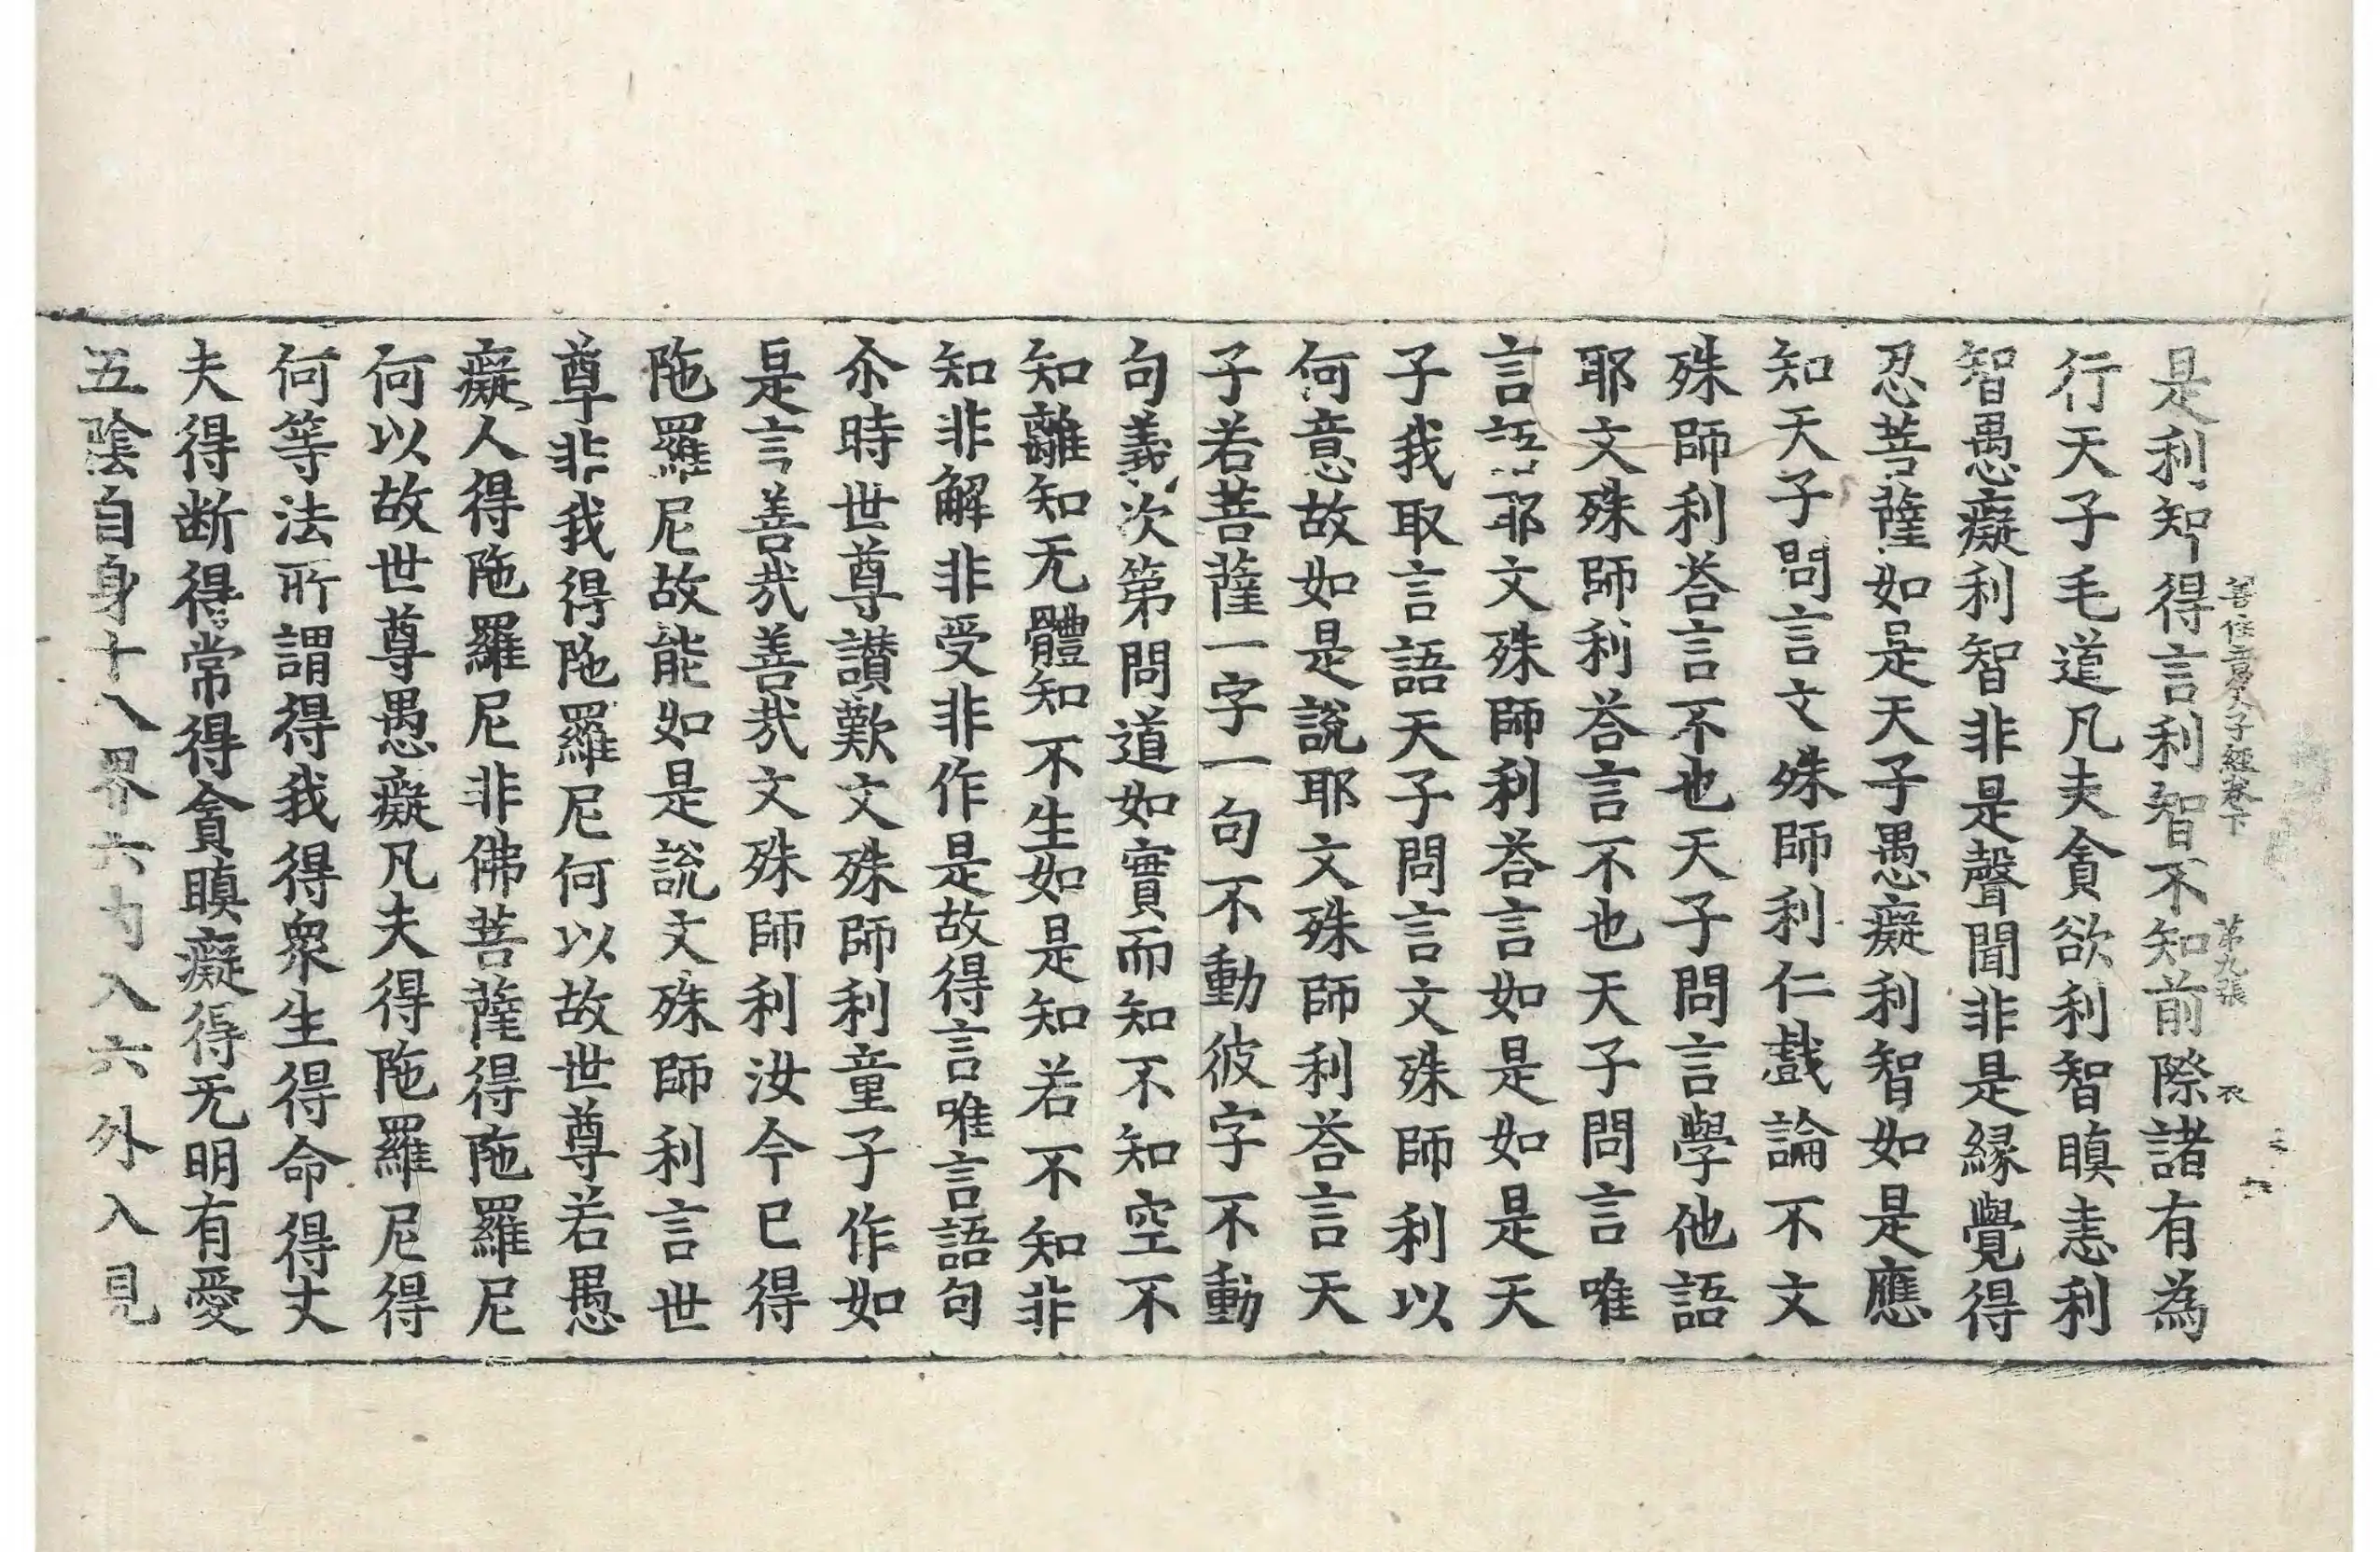 善住意天子經卷下 第九張 衣
是利知得言利智不知前際諸有為
行天子毛道凡夫貪欲利智瞋恚利
智愚癡利智非是聲聞非是縁覺得
忍菩薩如是天子愚癡利智如是應
知天子問言文殊師利仁戲論不文
殊師利荅言不也天子問言學他語
耶文殊師利荅言不也天子問言唯
言語耶文殊師利荅言如是如是天
子我取言語天子問言文殊師利以
何意故如是說耶文殊師利荅言天
子若菩薩一字一句不動彼字不動
句義次第問道如實而知不知空不
知離知无體知不生如是知若不知非
知非解非受非作是故得言唯言語句
尒時世尊讃歎文殊師利童子作如
是言善哉善哉文殊師利汝今已得
陁羅尼故能如是說文殊師利言世
尊非我得陁羅尼何以故世尊若愚
癡人得陁羅尼非佛菩薩得陁羅尼
何以故世尊愚癡凡夫得陁羅尼得
何等法所謂得我得衆生得命得丈
夫得断得常得貪瞋癡得无明有愛
五陰自身十八界六內入六外入見